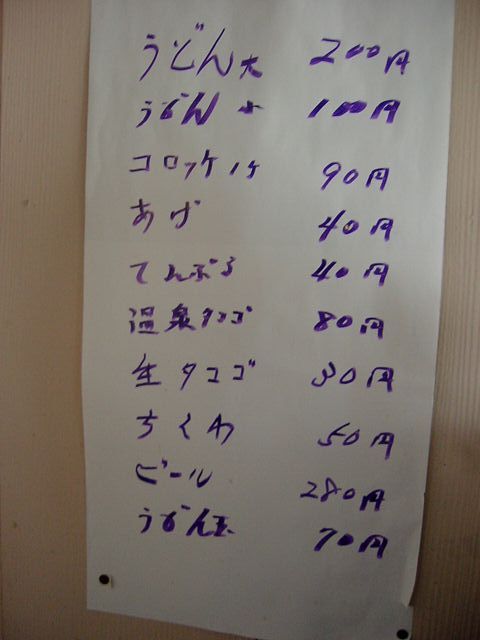 うどん大 200円
うどん小 100円
コロッケ1ケ 90円
あげ 40円
てんぷら 40円
温泉タマゴ 80円
生タマゴ 30円
ちくわ 50円
ビール 280円
うどん玉 70円